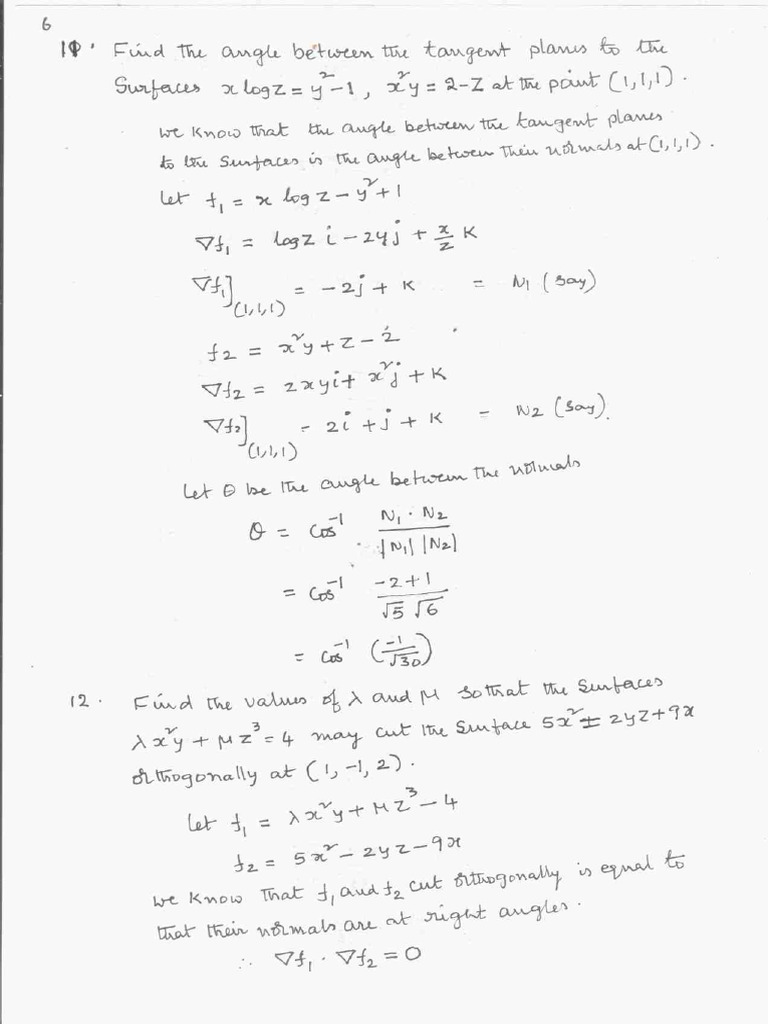 6
11. Find the angle between the tangent planes to the
Surfaces x log z = y² - 1, x²y = 2 - z at the point (1,1,1).
we know that the angle between the tangent planes
to the surfaces is the angle between their normals at (1,1,1).
Let f₁ = x log z - y² + 1
∇f₁ = log z i - 2y j + x/z k
∇f₁](1,1,1) = -2j + k = N₁ (say)
f₂ = x²y + z - 2
∇f₂ = 2xy i + x² j + k
∇f₂](1,1,1) = 2i + j + k = N₂ (say).
Let θ be the angle between the normals
θ = cos⁻¹ N₁ · N₂ / |N₁| |N₂|
= cos⁻¹ -2+1 / √5 √6
= cos⁻¹ (-1/√30)
12. Find the values of λ and μ so that the surfaces
λx²y + μz³ = 4 may cut the surface 5x² = 2yz + 9x
orthogonally at (1, -1, 2).
Let f₁ = λx²y + μz³ - 4
f₂ = 5x² - 2yz - 9x
we know that f₁ and f₂ cut orthogonally is equal to
that their normals are at right angles.
∴ ∇f₁ · ∇f₂ = 0